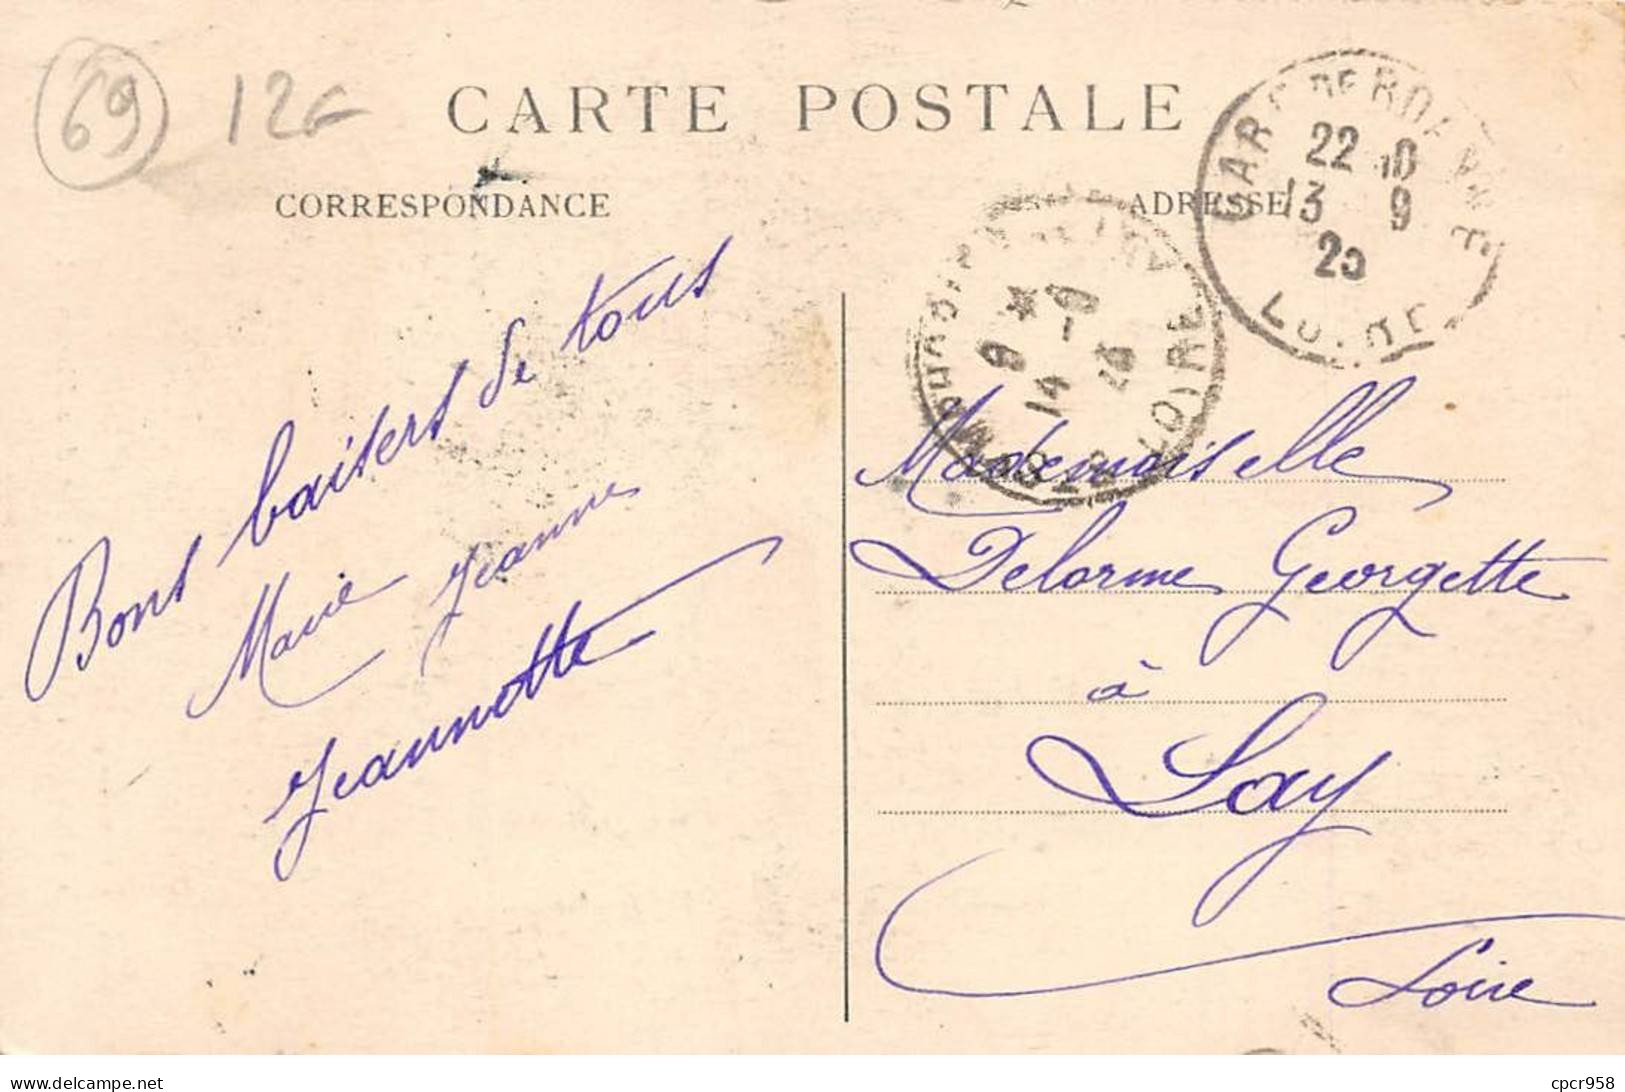 69 12
CARTE POSTALE
CORRESPONDANCE
ADRESSE
GARE DE ROANNE
22
13 9
25
LOIRE
9 *
14 - 9
LOIRE
Bons baisers de tous
Marie Jeanne
Jeannotte
Mademoiselle
Delorme Georgette
à
Lay
Loire
cpcr958